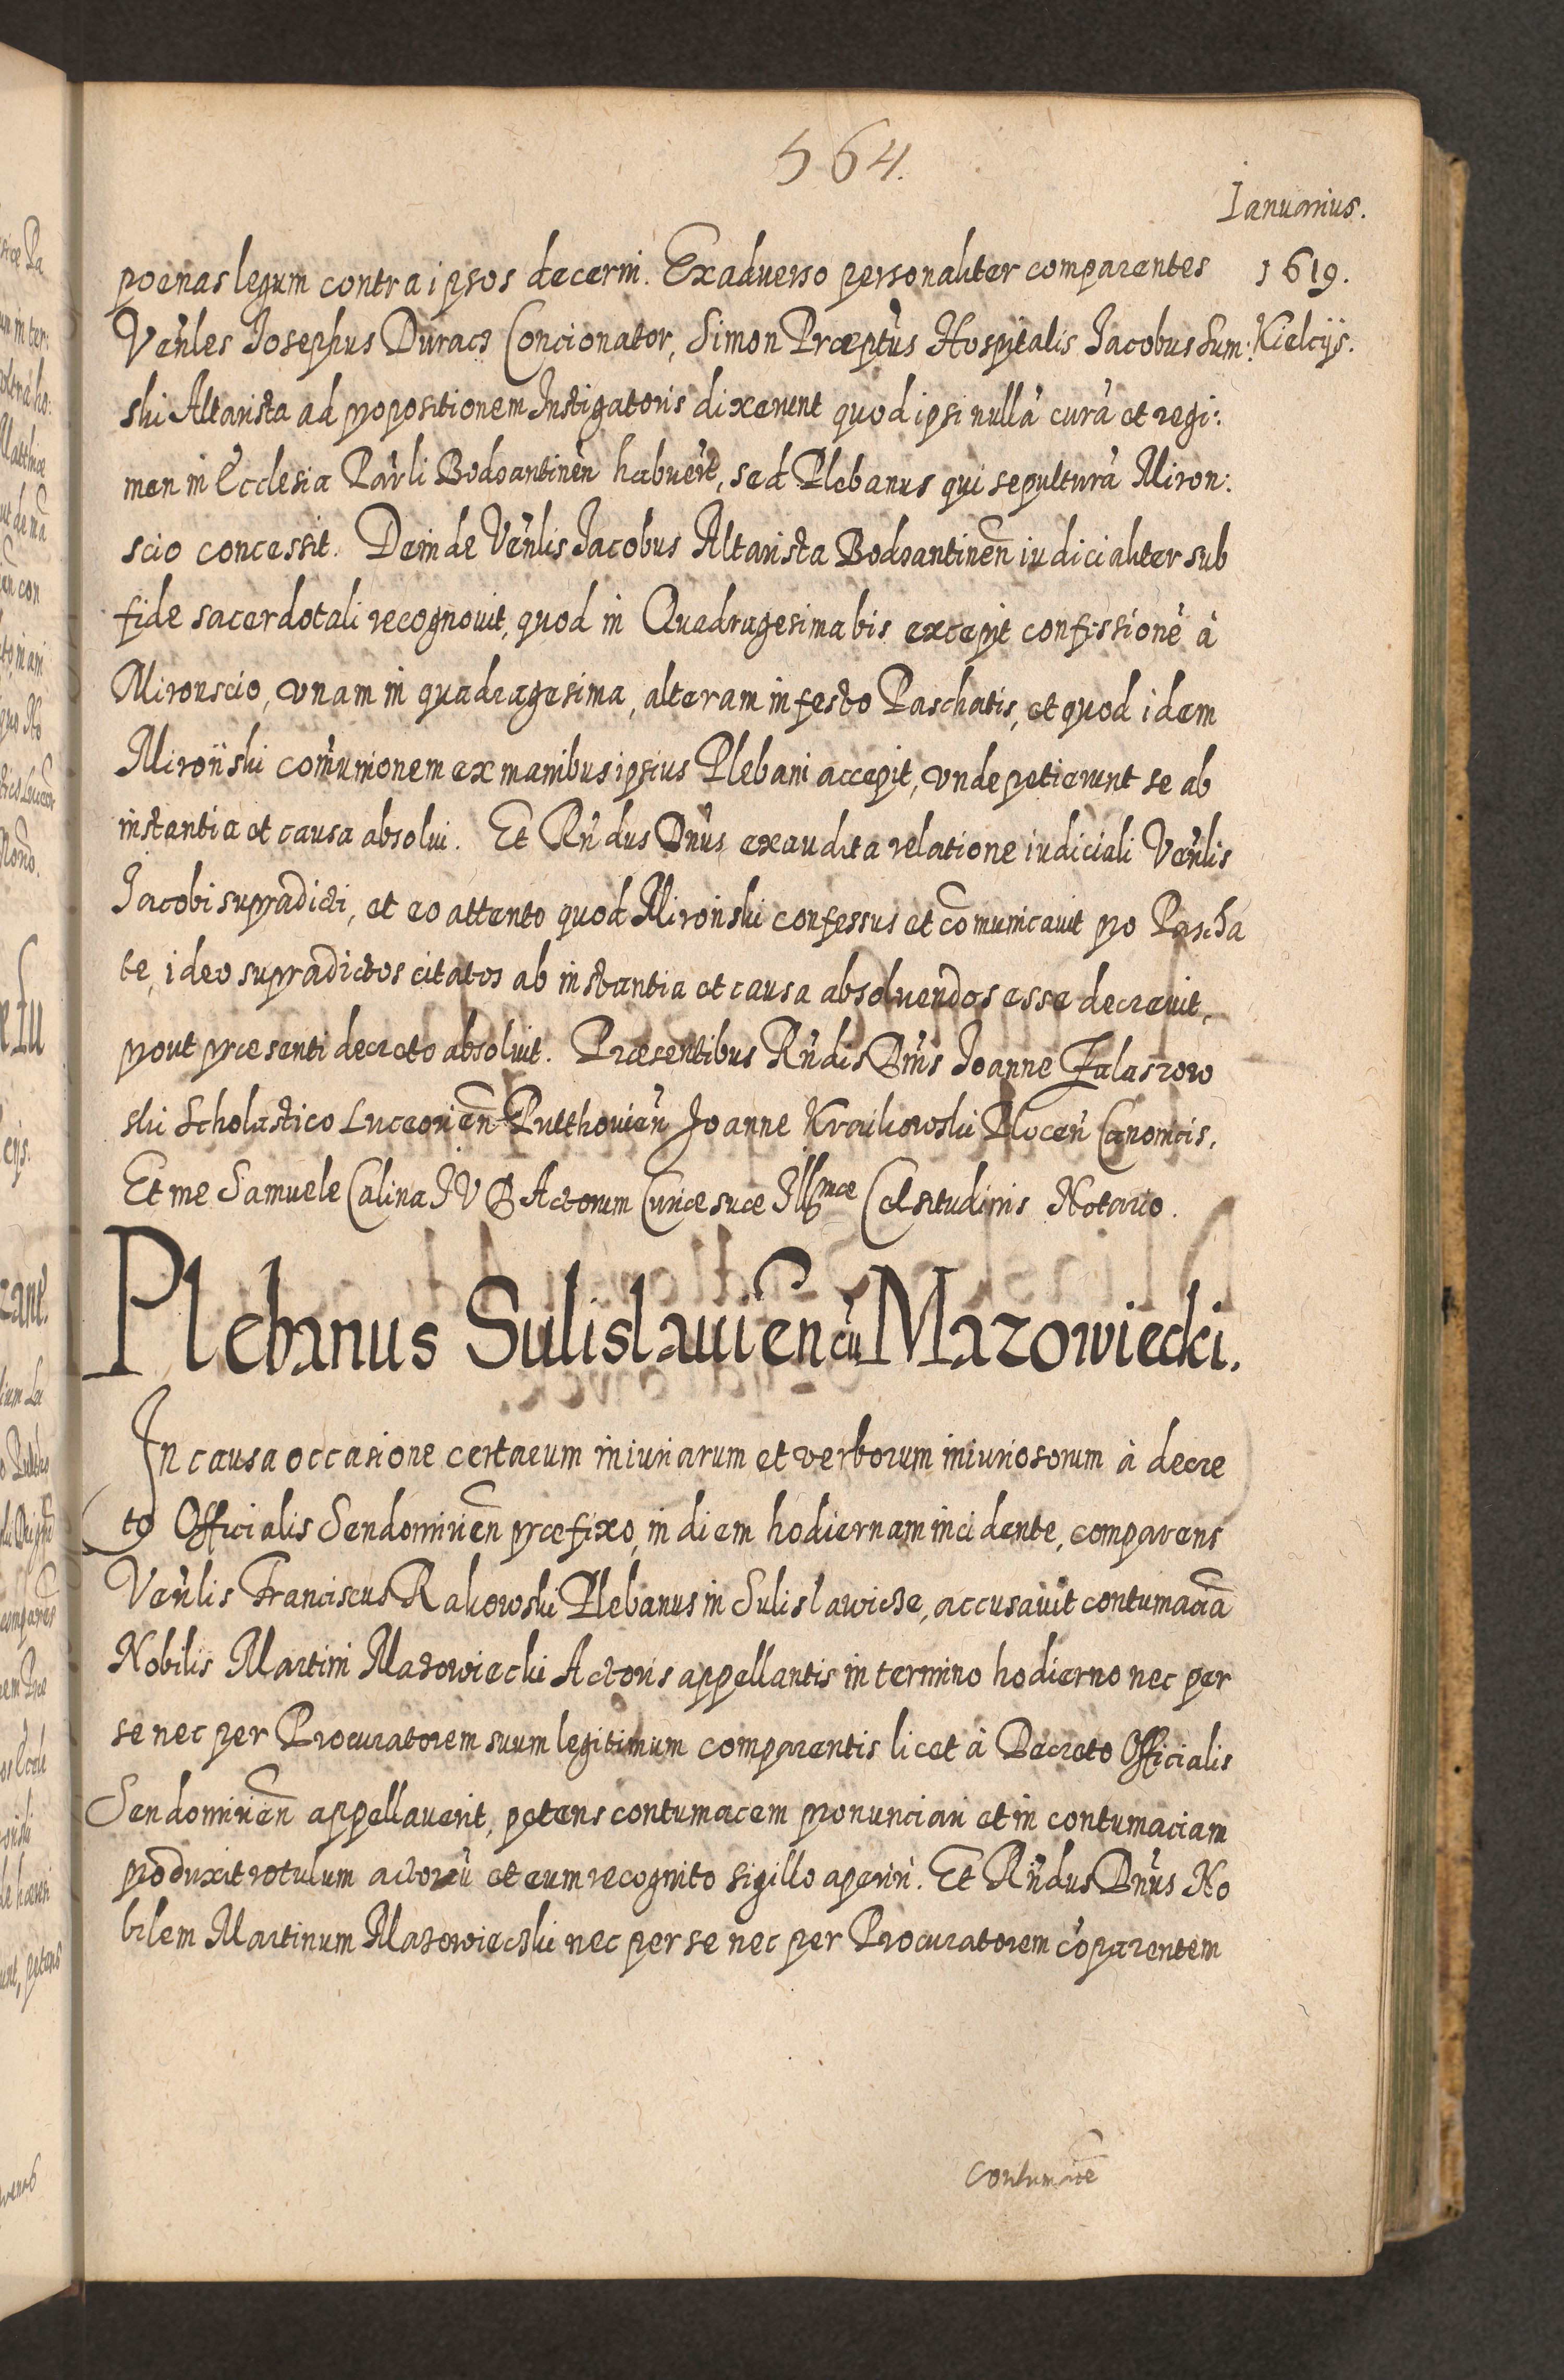 564.
Ianuarius.
poenas legum contra ipsos decerni. Ex aduerso personaliter comparentes 1619.
Venles Josephus Duracz Concionator, Simon Præptus Hospitalis Jacobus Sum: Kielcijs.
ski Altarista ad propositionem Instigatoris dixerunt quod ipsi nullā curā et regi:
men in Ecclesia Parli Bodzantinen habuert, sed Plebanus qui sepulturā Miron:
scio concessit. Deinde Venlis Jacobus Altarista Bodzantinen iudicialiter sub
fide sacerdotali recognouit, quod in Quadragesima bis excepit confessionē à
Mironscio, vnam in quadragesima, alteram in festo Paschatis, et quod idem
Mironski comunionem ex manibus ipsius Plebani accepit, vnde petierunt se ab
instantia et causa absolui. Et Rndus Dnus exaudita relatione iudiciali Venlis
Jacobi supradicti, et eo attento quod Mironski confessus et comunicauit pro Pascha
te, ideo supradictos citatos ab instantia et causa absoluendos esse decreuit,
prout præsenti decreto absoluit. Præsentibus Rndis Dnis Joanne Zalaszow
ski Scholastico Luceorien Pulthouien Joanne Kraikowski Plocen Canonicis,
Et me Samuele Calina J V D Actorum Curiæ suæ Jllmæ Celsitudinis Notario.
Plebanus Sulislauien cū Mazowiecki.
In causa occasione certarum iniuriarum et verborum iniuriosorum à decre
to Officialis Sendomirien præfixo, in diem hodiernam incidente, comparens
Venlis Franciscus Rakowski Plebanus in Sulislawicze, accusauit contumaciā
Nobilis Martini Mazowiecki Actoris appellantis in termino hodierno nec per
se nec per Procuratorem suum legitimum comparentis licet à Decreto Officialis
Sendomirien appellauerit, petens contumacem pronunciari et in contumaciam
produxit rotulum actorū et eum recognito sigillo aperiri. Et Rndus Dnus No
bilem Martinum Mazowieczki nec per se nec per Procuratorem cōparentem
Contumacē